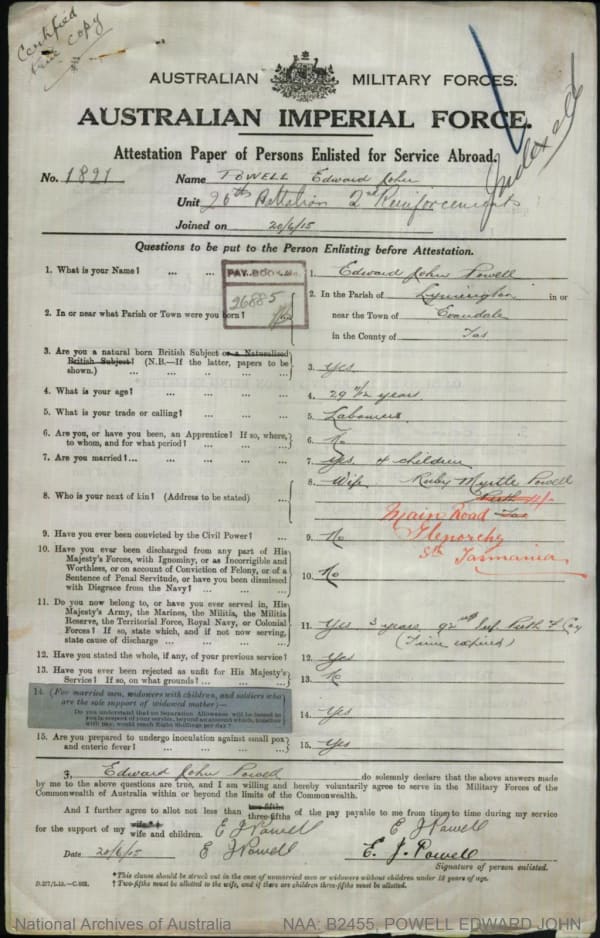 Certified
true copy
AUSTRALIAN MILITARY FORCES.
AUSTRALIAN IMPERIAL FORCE.
Indexed
Attestation Paper of Persons Enlisted for Service Abroad.
No. 1821 Name POWELL Edward John
Unit 26th Battalion 2nd Reinforcements
Joined on 20/6/15
Questions to be put to the Person Enlisting before Attestation.
1. What is your Name? ... ... 1. Edward John Powell
PAY BOOK No.
26885
2. In or near what Parish or Town were you born? 2. In the Parish of Lymington in or
near the Town of Evandale
in the County of Tas
3. Are you a natural born British Subject or a Naturalised British Subject? (N.B.—If the latter, papers to be shown.) ... 3. Yes
4. What is your age? ... 4. 29 9/12 years.
5. What is your trade or calling? ... 5. Labourer
6. Are you, or have you been, an Apprentice? If so, where, to whom, and for what period? ... 6. No
7. Are you married? ... 7. Yes. 4 children
8. Who is your next of kin? (Address to be stated) ... 8. Wife Ruby Myrtle Powell
Perth
Tas
Main Road
Glenorchy
Tasmania
9. Have you ever been convicted by the Civil Power? ... 9. No
10. Have you ever been discharged from any part of His Majesty's Forces, with Ignominy, or as Incorrigible and Worthless, or on account of Conviction of Felony, or of a Sentence of Penal Servitude, or have you been dismissed with Disgrace from the Navy? ... 10. No
11. Do you now belong to, or have you ever served in, His Majesty's Army, the Marines, the Militia, the Militia Reserve, the Territorial Force, Royal Navy, or Colonial Forces? If so, state which, and if not now serving, state cause of discharge ... 11. Yes 3 years 92nd Inf. Perth Coy
(Time expired)
12. Have you stated the whole, if any, of your previous service? 12. Yes
13. Have you ever been rejected as unfit for His Majesty's Service? If so, on what grounds? ... 13. No
14. (For married men, widowers with children, and soldiers who are the sole support of widowed mother)—
Do you understand that no Separation Allowance will be issued to you in respect of your service, beyond an amount which, together with pay, would reach Eight shillings per day? 14. Yes
15. Are you prepared to undergo inoculation against small pox and enteric fever? ... 15. Yes
I, Edward John Powell do solemnly declare that the above answers made
by me to the above questions are true, and I am willing and hereby voluntarily agree to serve in the Military Forces of the
Commonwealth of Australia within or beyond the limits of the Commonwealth.
And I further agree to allot not less than two-fifths three-fifths of the pay payable to me from time to time during my service
for the support of my wife* wife and children. E J Powell E J Powell
Date 20/6/15 E J Powell E. J. Powell
Signature of person enlisted.
*This clause should be struck out in the case of unmarried men or widowers without children under 18 years of age.
† Two-fifths must be allotted to the wife, and if there are children three-fifths must be allotted.
National Archives of Australia NAA: B2455, POWELL EDWARD JOHN